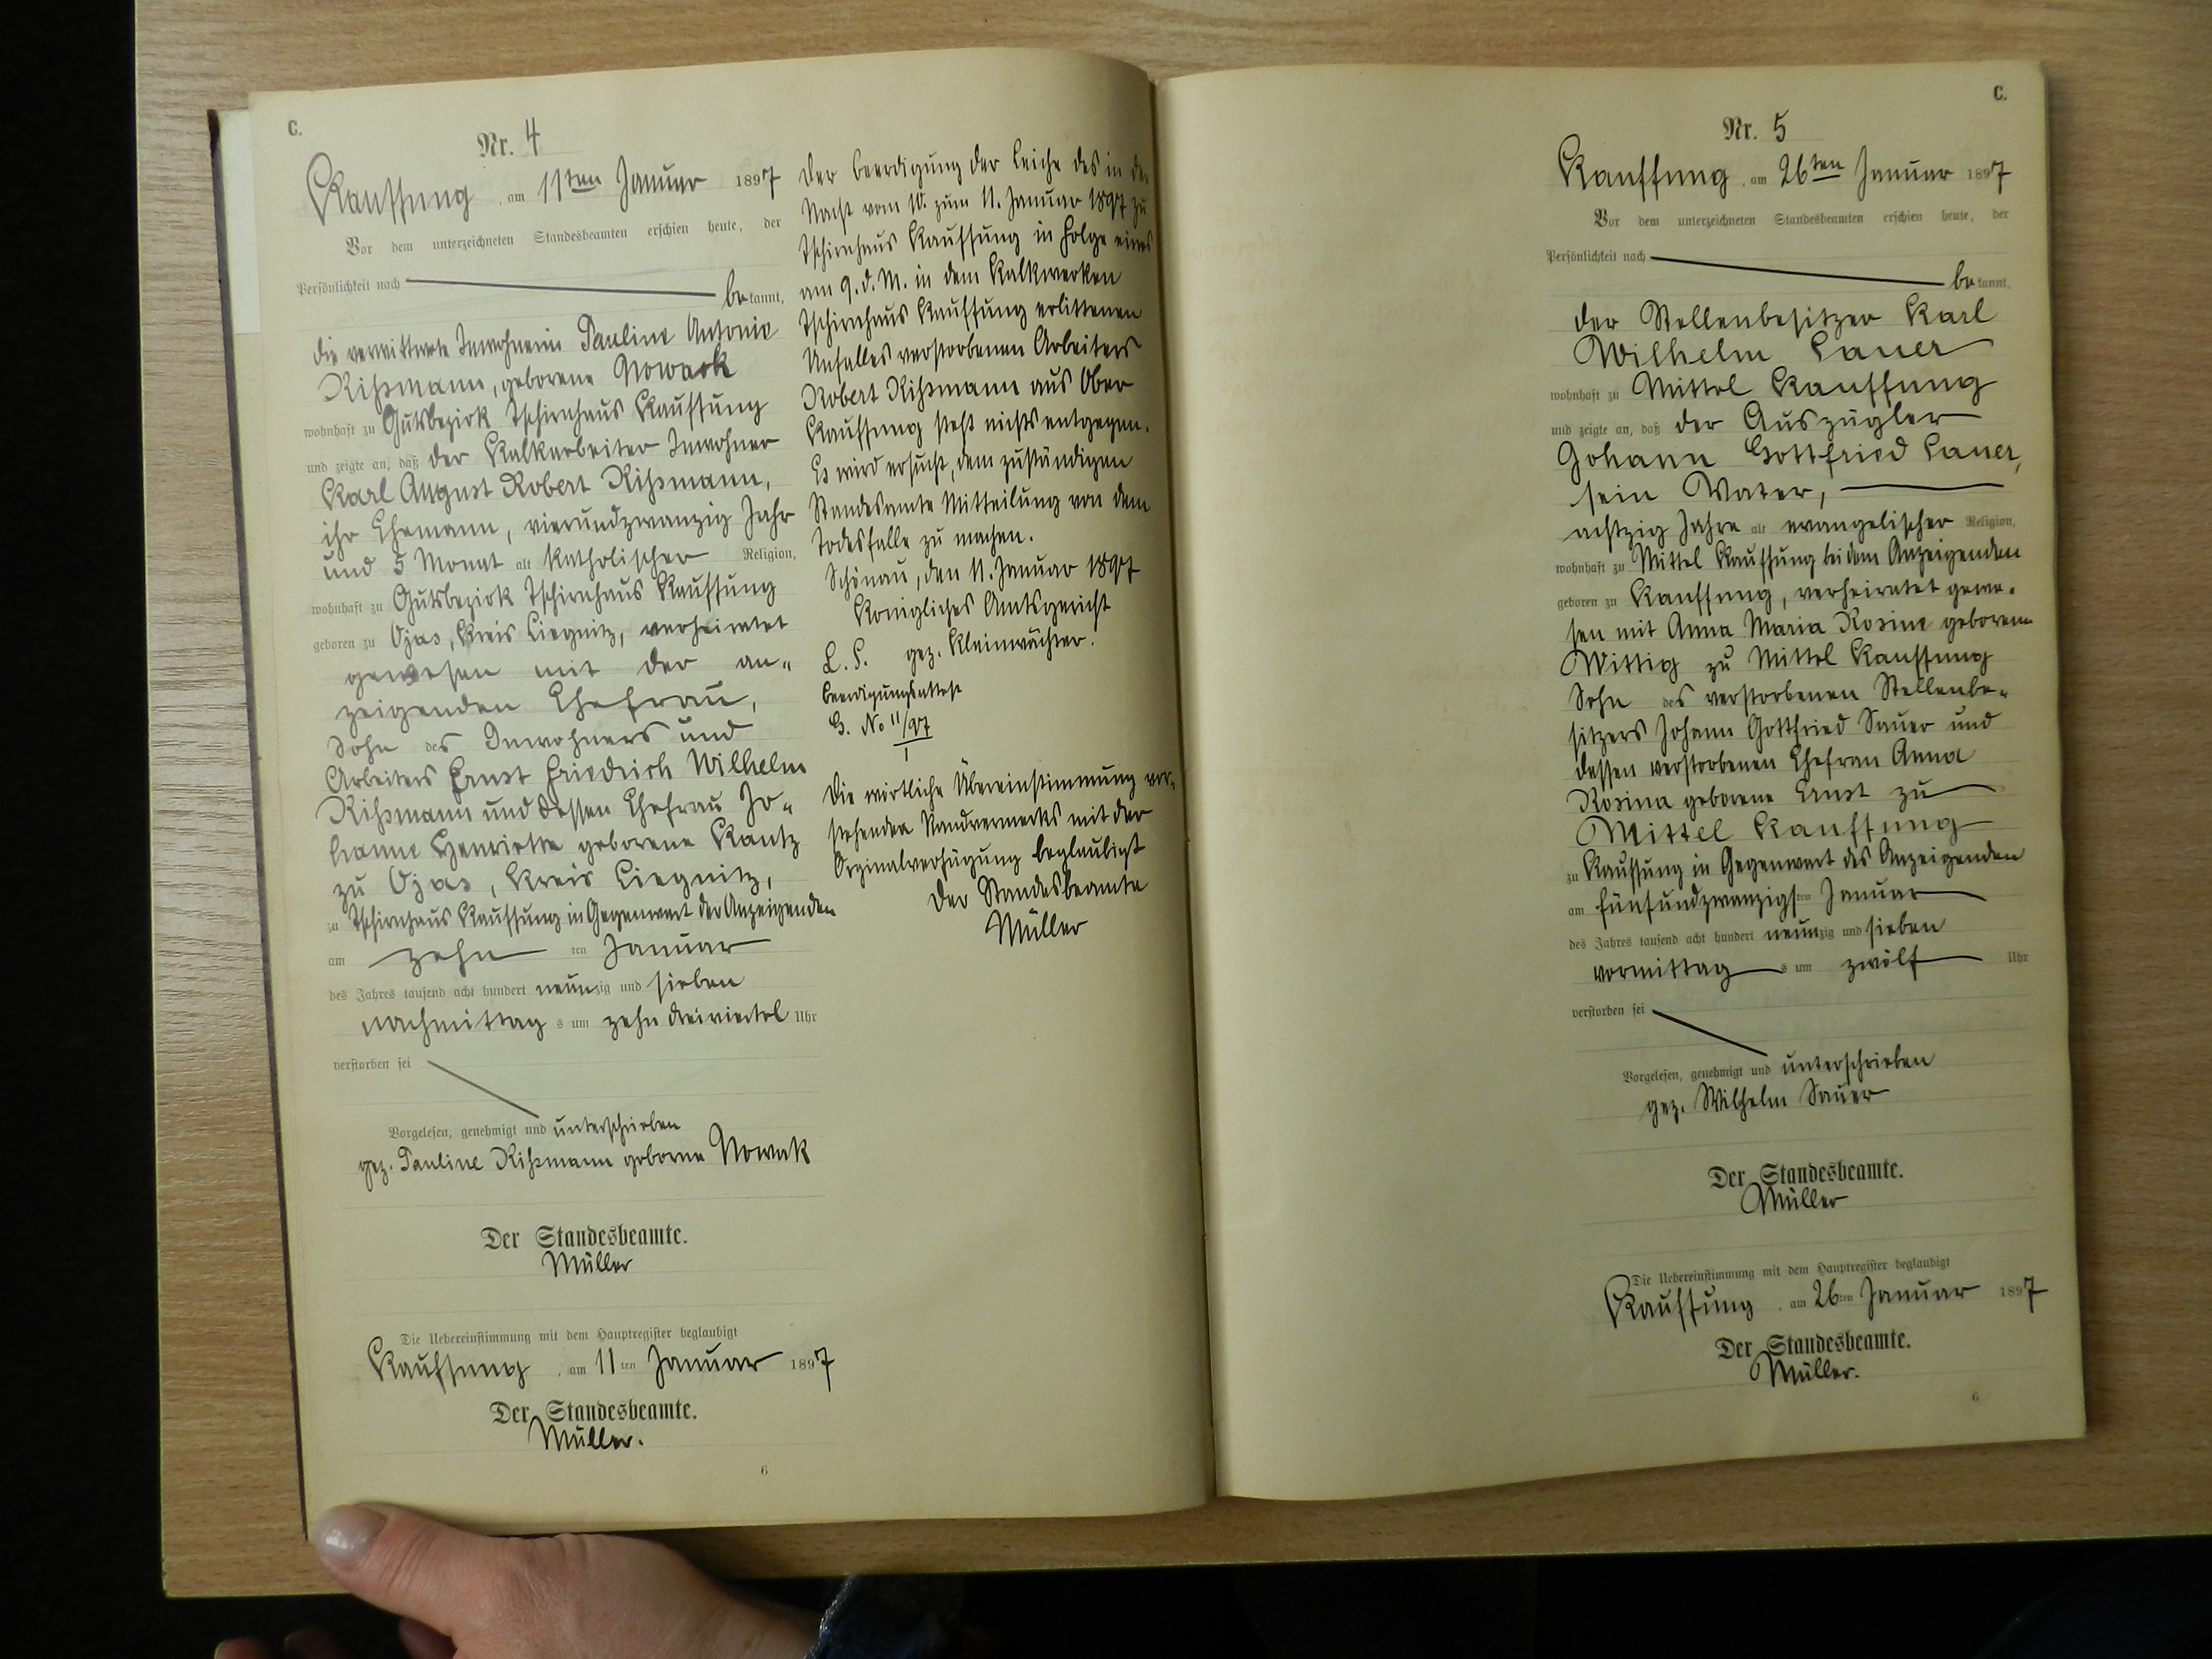 C.
Nr. 4
Kauffung, am 11ten Januar 1897
Vor dem unterzeichneten Standesbeamten erschien heute, der
Persönlichkeit nach
bekannt,
die verwittwete Inwohnerin Pauline Antonie
Rißmann, geborene Nowack
wohnhaft zu Gutsbezirk Tschirnhaus Kauffung
und zeigte an, daß der Kalkarbeiter Inwohner
Karl August Robert Rißmann,
ihr Ehemann, vierundzwanzig Jahr
und 5 Monat alt katholischer Religion,
wohnhaft zu Gutsbezirk Tschirnhaus Kauffung
geboren zu Ojas, Kreis Liegnitz, verheiratet
gewesen mit der an-
zeigenden Ehefrau,
Sohn des Inwohners und
Arbeiters Ernst Friedrich Wilhelm
Rißmann und dessen Ehefrau Jo-
hanne Henriette geborene Kautz
zu Ojas, Kreis Liegnitz,
zu Tschirnhaus Kauffung in Gegenwart der Anzeigenden
am zehn ten Januar
des Jahres tausend acht hundert neunzig und sieben
nachmittags um zehn dreiviertel Uhr
verstorben sei
Vorgelesen, genehmigt und unterschrieben
gez. Pauline Rißmann geborne Nowak
Der Standesbeamte.
Müller
Die Uebereinstimmung mit dem Hauptregister beglaubigt
Kauffung, am 11ten Januar 1897
Der Standesbeamte.
Müller.
6
Der Beerdigung der Leiche des in der
Nacht vom 10. zum 11. Januar 1897 zu
Tschirnhaus Kauffung in Folge eines
am 9. d. M. in dem Kalkwerken
Tschirnhaus Kauffung erlittenen
Unfalles verstorbenen Arbeiters
Robert Rißmann aus Ober
Kauffung steht nichts entgegen.
Es wird ersucht, dem zuständigen
Standesamte Mitteilung von dem
Todesfalle zu machen.
Schönau, den 11. Januar 1897
Königliches Amtsgericht
L. S. gez. Kleinwächter.
Beerdigungsattest
G. No 11/97
I
Die wörtliche Übereinstimmung vor-
stehenden Randvermerks mit der
Orginalverfügung beglaubigt
Der Standesbeamte
Müller
C.
Nr. 5
Kauffung, am 26ten Januar 1897
Vor dem unterzeichneten Standesbeamten erschien heute, der
Persönlichkeit nach
bekannt,
der Stellenbesitzer Karl
Wilhelm Sauer
wohnhaft zu Mittel Kauffung
und zeigte an, daß der Auszügler
Johann Gottfried Sauer,
sein Vater,
achtzig Jahre alt evangelischer Religion,
wohnhaft zu Mittel Kauffung bei dem Anzeigenden
geboren zu Kauffung, verheiratet gewe-
sen mit Anna Maria Rosine geborene
Wittig zu Mittel Kauffung
Sohn des verstorbenen Stellenbe-
sitzers Johann Gottfried Sauer und
dessen verstorbenen Ehefrau Anna
Rosina geborene Ernst zu
Mittel Kauffung
zu Kauffung in Gegenwart des Anzeigenden
am fünfundzwanzigsten Januar
des Jahres tausend acht hundert neunzig und sieben
vormittags um zwölf Uhr
verstorben sei
Vorgelesen, genehmigt und unterschrieben
gez. Wilhelm Sauer
Der Standesbeamte.
Müller
Die Uebereinstimmung mit dem Hauptregister beglaubigt
Kauffung, am 26ten Januar 1897
Der Standesbeamte.
Müller.
6